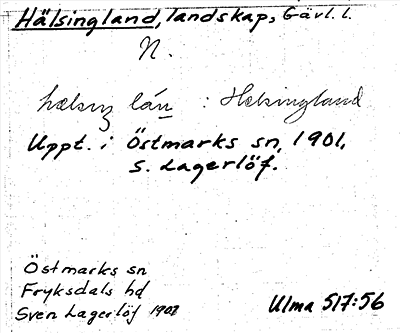 Hälsingland, landskap, Gävl. l.
N.
hælsiŋ lán : Helsingland
Uppt. i Östmarks sn, 1901,
S. Lagerlöf.
Östmarks sn
Fryksdals hd
Sven Lagerlöf 1902
Ulma 517:56